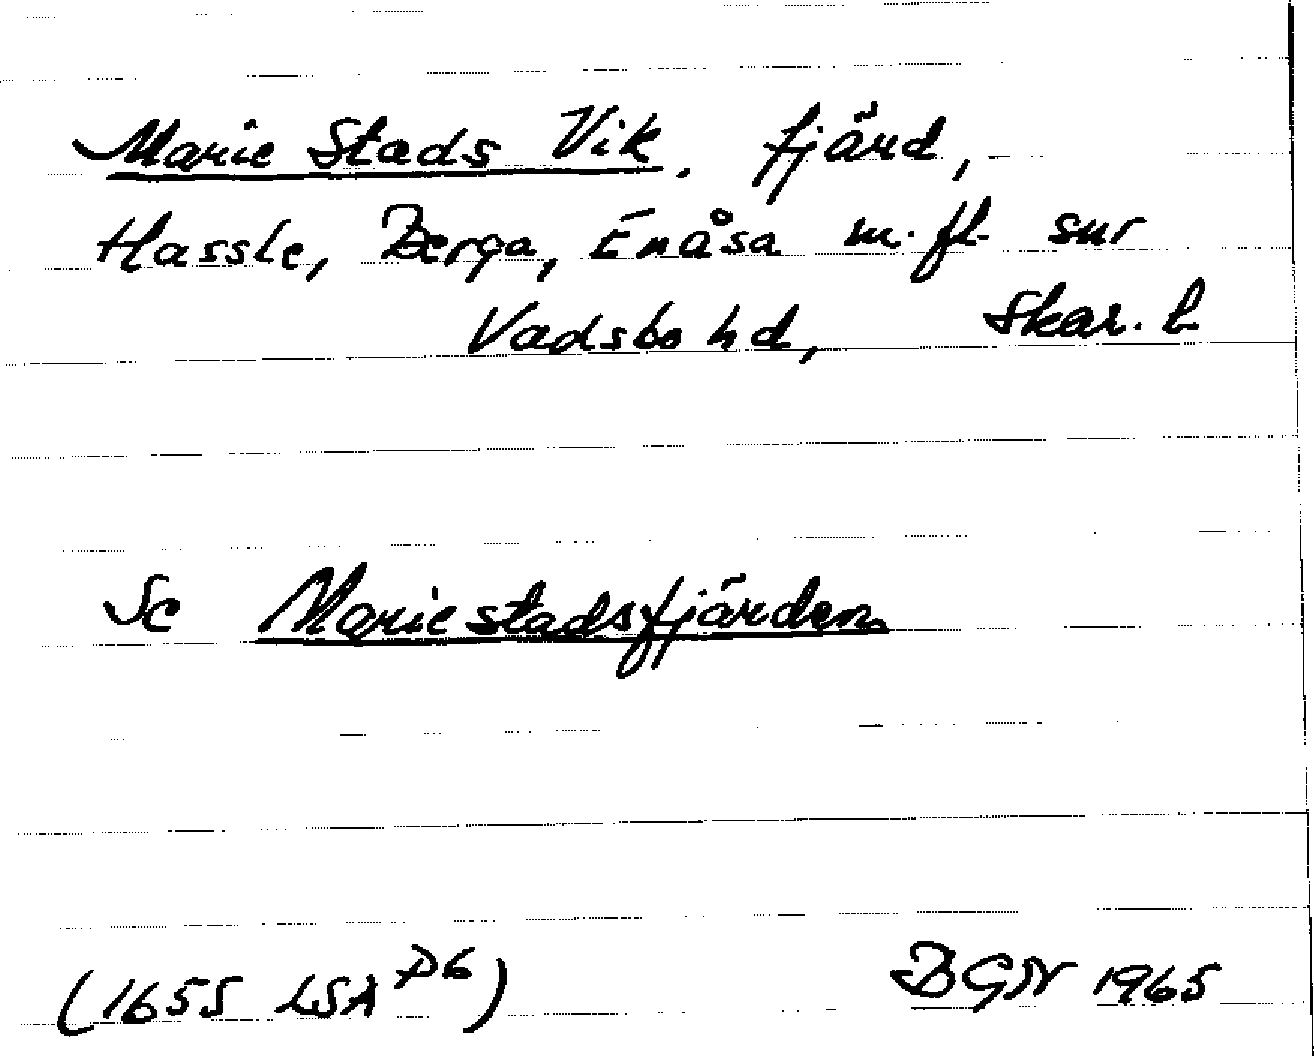 Marie Stads Vik, fjärd,
Hassle, Berga, Enåsa m.fl. snr
Vadsbo hd, Skar. l.
Se Mariestadsfjärden
(1655 LSA D6) BGN 1965